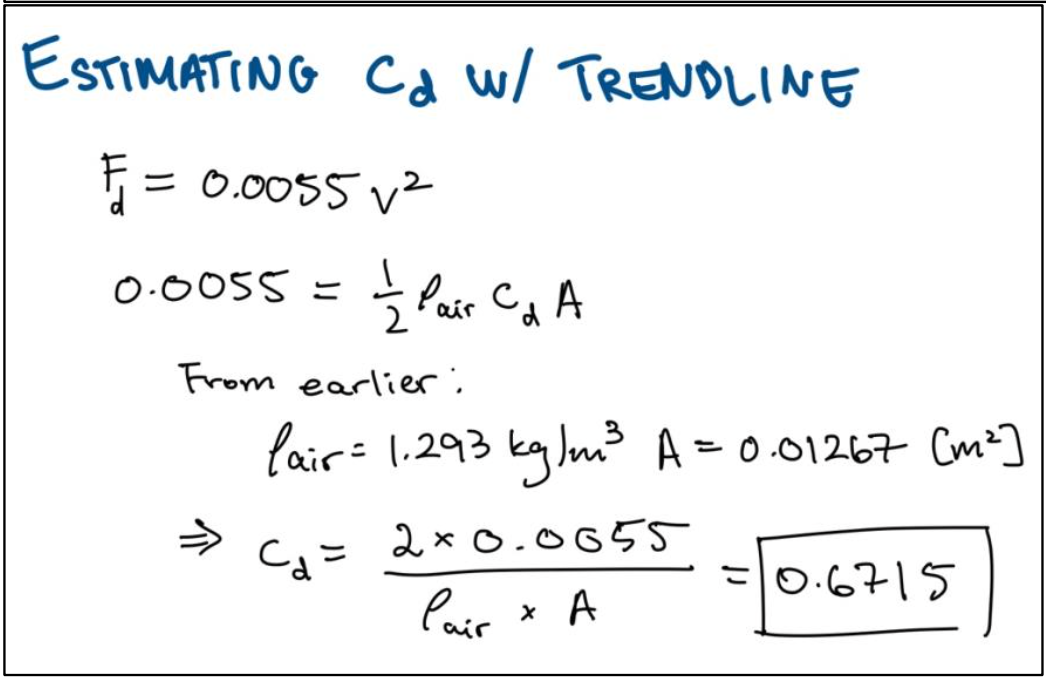 ESTIMATING Cd W/ TRENDLINE
F_d = 0.0055 v²
0.0055 = 1/2 ρ_air C_d A
From earlier:
ρ_air = 1.293 kg/m³ A = 0.01267 [m²]
⇒ C_d = (2 × 0.0055)/(ρ_air × A) = 0.6715